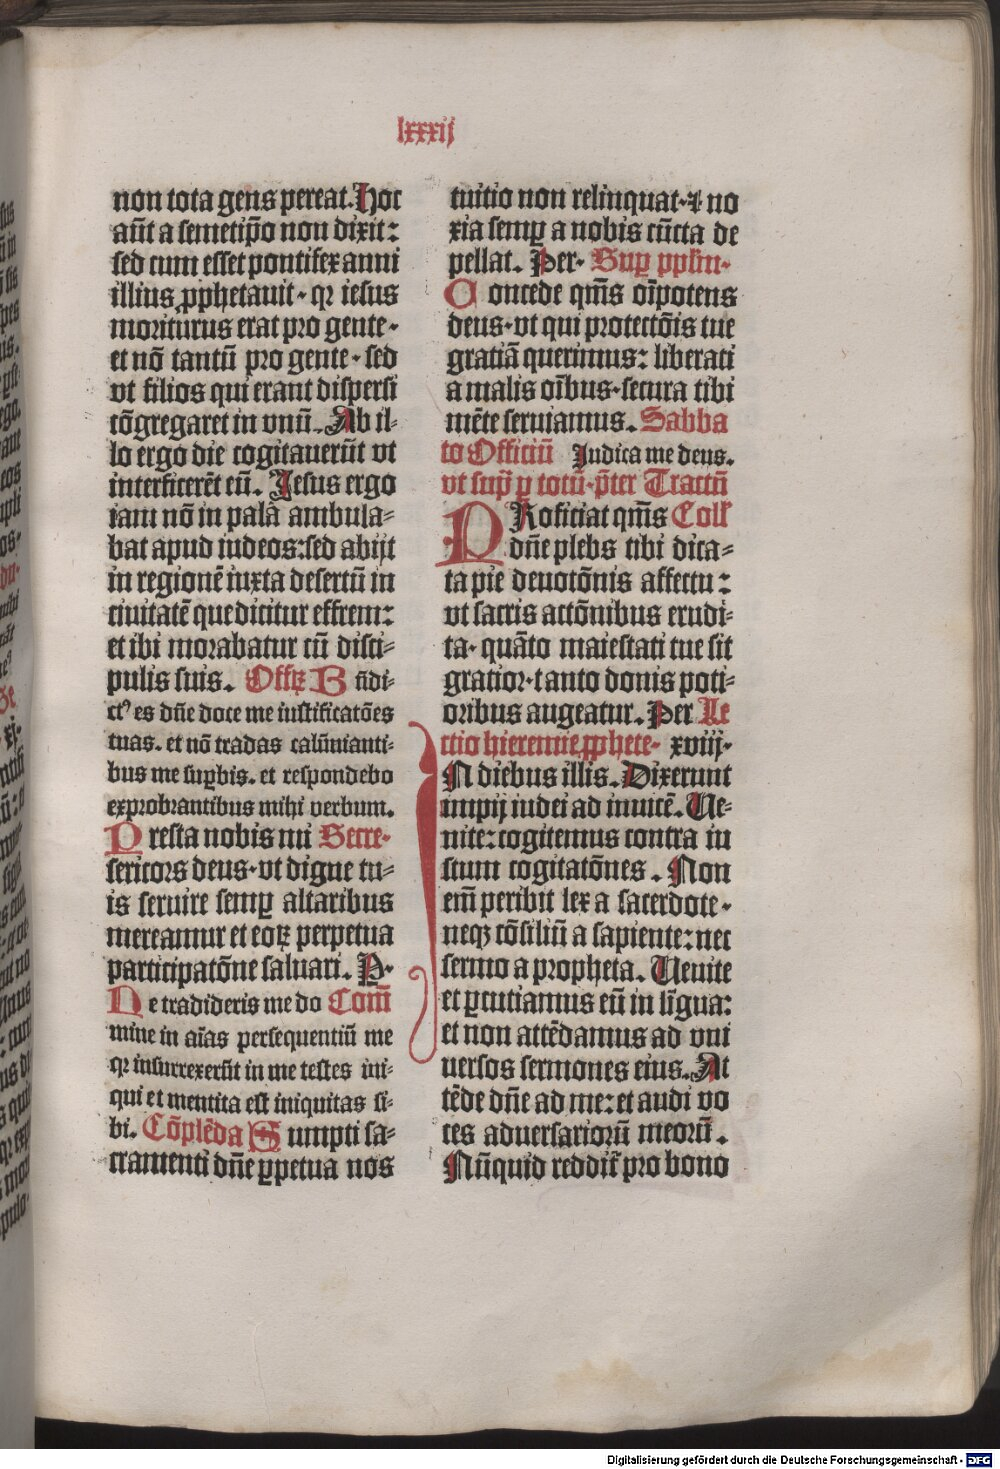 lxxxij
non tota gens pereat. Hoc
aūt a semetip̄o non dixit:
sed cum esset pontifex anni
illius ꝓphetauit · qꝛ iesus
moriturus erat pro gente ·
et nō tantū pro gente · sed
vt filios qui erant dispersi
cōgregaret in vnū. Ab il-
lo ergo die cogitauerūt vt
interficerēt eū. Jesus ergo
iam nō in palā ambula-
bat apud iudeos: sed abijt
in regionē iuxta desertū in
ciuitatē que dicitur effrem:
et ibi morabatur cū disci-
pulis suis. Offꝫ B n̄di-
ctꝰ es dn̄e doce me iustificatōes
tuas. et nō tradas calūnianti-
bus me suꝑbis. et respondebo
exprobrantibus mihi verbum.
Presta nobis mi Secre·
sericors deus · vt digne tu-
is seruire semꝑ altaribus
mereamur et eoꝝ perpetua
participatōne saluari. P·
Ne tradideris me do Com̄
mine in aīas persequentiū me
qꝛ insurrexerūt in me testes ini-
qui et mentita est iniquitas si-
bi. Cōplēda Sumpti sa-
cramenti dn̄e ꝑpetua nos
tuitio non relinquat · ⁊ no
xia semꝑ a nobis cūcta de
pellat. Per· Suꝑ pplm̄·
Concede qm̄s oīpotens
deus · vt qui protectōis tue
gratiā querimus: liberati
a malis oībus · secura tibi
mēte seruiamus. Sabba
to Officiū Judica me deus.
vt sup̄ ꝑ totū · p̄ter Tractū
PRoficiat qm̄s Coll'
dn̄e plebs tibi dica-
ta pie deuotōnis affectu:
vt sacris actōnibus erudi-
ta · quāto maiestati tue sit
gratior · tanto donis poti-
oribus augeatur. Per Le
ctio hieremie ꝓphete· xviij·
IN diebus illis. Dixerunt
impij iudei ad inuicē. Ue-
nite: cogitemus contra iu
stum cogitatōnes. Non
em̄ peribit lex a sacerdote ·
neqꝫ cōsiliū a sapiente: nec
sermo a propheta. Uenite
et ꝑcutiamus eū in līgua:
et non attēdamus ad vni
uersos sermones eius. At
tēde dn̄e ad me: et audi vo
ces aduersariorū meorū.
Nūquid reddit̄ pro bono
Digitalisierung gefördert durch die Deutsche Forschungsgemeinschaft - DFG